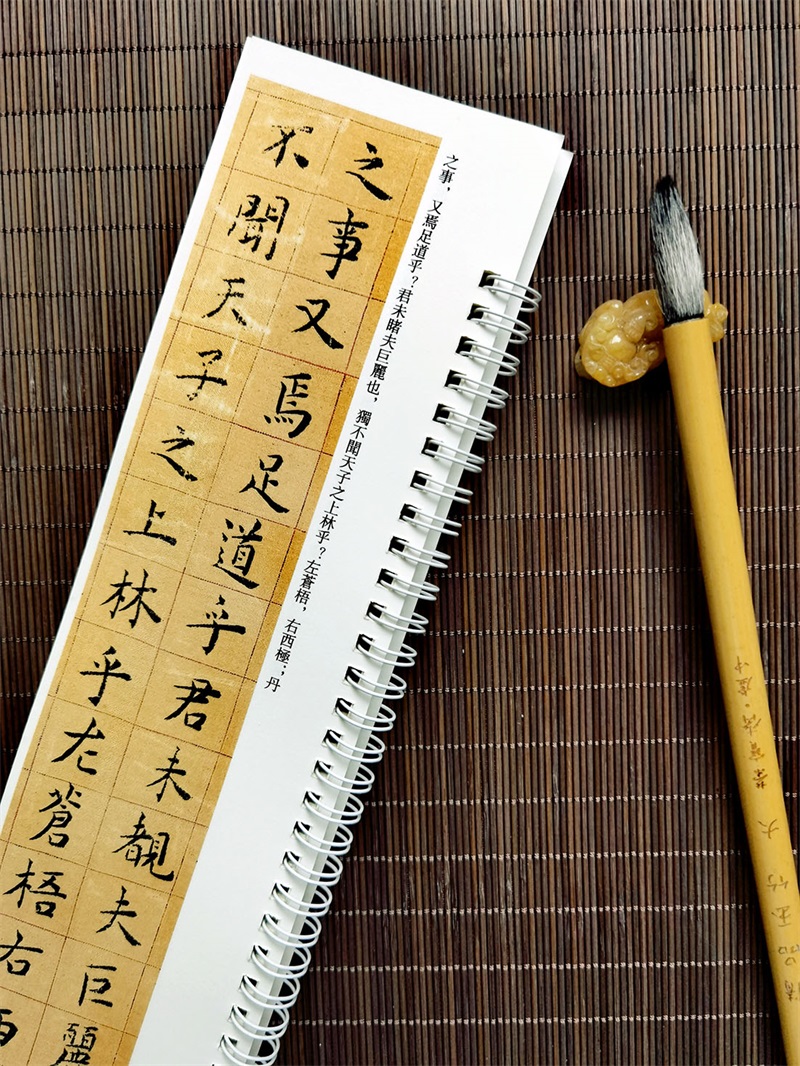 之事，又焉足道乎？君未睹夫巨麗也，獨不聞天子之上林乎？左蒼梧，右西極；丹
之事又焉足道乎君未覩夫巨麗
不聞天子之上林乎左蒼梧右西